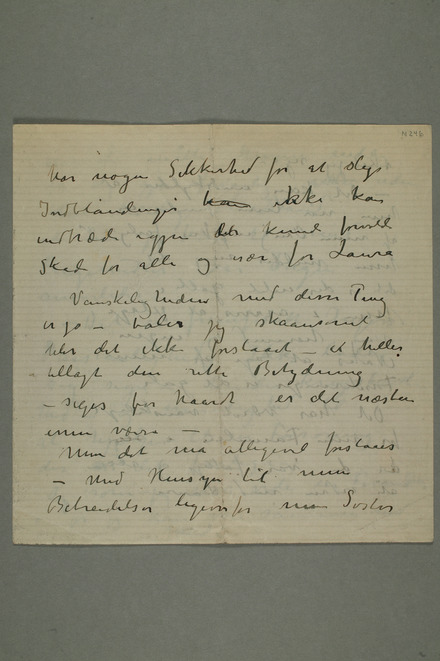 N 246
har nogen Sikkerhed for at slige
Indblandinger kan ikke kan
indtræde igjen det kunde forvolde
Skade for alle og især for Laura
Vanskeligheden med disse Ting
er jo – taler jeg skaansomt
blir det ikke forstaaet – et heller
tillagt den rette Betydning
– siges for haardt er det næsten
enu værre –
Men det må alligevel forstaaes
– Med Hensyn til min
Betændelse ligeovfor min Søster